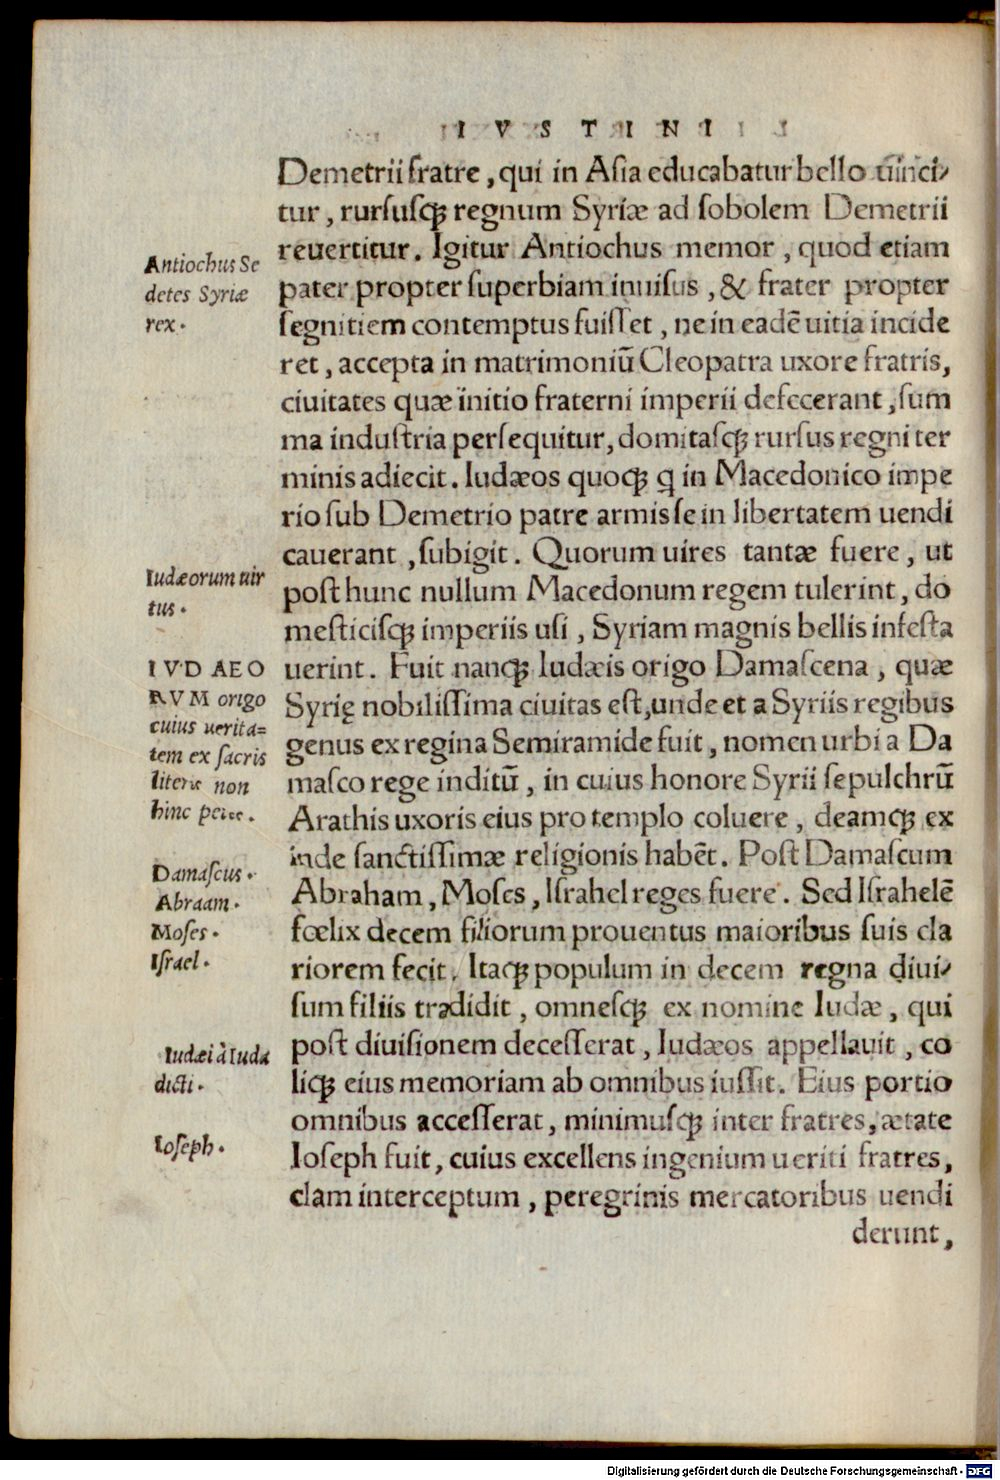 IVSTINI
Demetrii fratre, qui in Asia educabatur bello uinci⸗
tur, rursusq́; regnum Syriæ ad sobolem Demetrii
reuertitur. Igitur Antiochus memor, quod etiam
pater propter superbiam inuisus, & frater propter
segnitiem contemptus fuisset, ne in eadē uitia incide
ret, accepta in matrimoniū Cleopatra uxore fratris,
ciuitates quæ initio fraterni imperii defecerant, sum
ma industria persequitur, domitasq́; rursus regni ter
minis adiecit. Iudæos quoq́; q in Macedonico impe
rio sub Demetrio patre armis se in libertatem uendi
cauerant, subigit. Quorum uires tantæ fuere, ut
post hunc nullum Macedonum regem tulerint, do
mesticisq́; imperiis usi, Syriam magnis bellis infesta
uerint. Fuit nanq́; Iudæis origo Damascena, quæ
Syrię nobilissima ciuitas est, unde et a Syriis regibus
genus ex regina Semiramide fuit, nomen urbi a Da
masco rege inditū, in cuius honore Syrii sepulchrū
Arathis uxoris eius pro templo coluere, deamq́; ex
inde sanctissimæ religionis habēt. Post Damascum
Abraham, Moses, Israhel reges fuere. Sed Israhelē
fœlix decem filiorum prouentus maioribus suis cla
riorem fecit. Itaq́; populum in decem regna diui⸗
sum filiis tradidit, omnesq́; ex nomine Iudæ, qui
post diuisionem decesserat, Iudæos appellauit, co
liq́; eius memoriam ab omnibus iussit. Eius portio
omnibus accesserat, minimusq́; inter fratres, ætate
Ioseph fuit, cuius excellens ingenium ueriti fratres,
clam interceptum, peregrinis mercatoribus uendi
derunt,
Antiochus Se
detes Syriæ
rex.
Iudæorum uir
tus.
IVDAEO
RVM origo
cuius uerita=
tem ex sacris
literis non
hinc pete.
Damascus.
Abraam.
Moses.
Israel.
Iudæi à Iuda
dicti.
Ioseph.
Digitalisierung gefördert durch die Deutsche Forschungsgemeinschaft - DFG